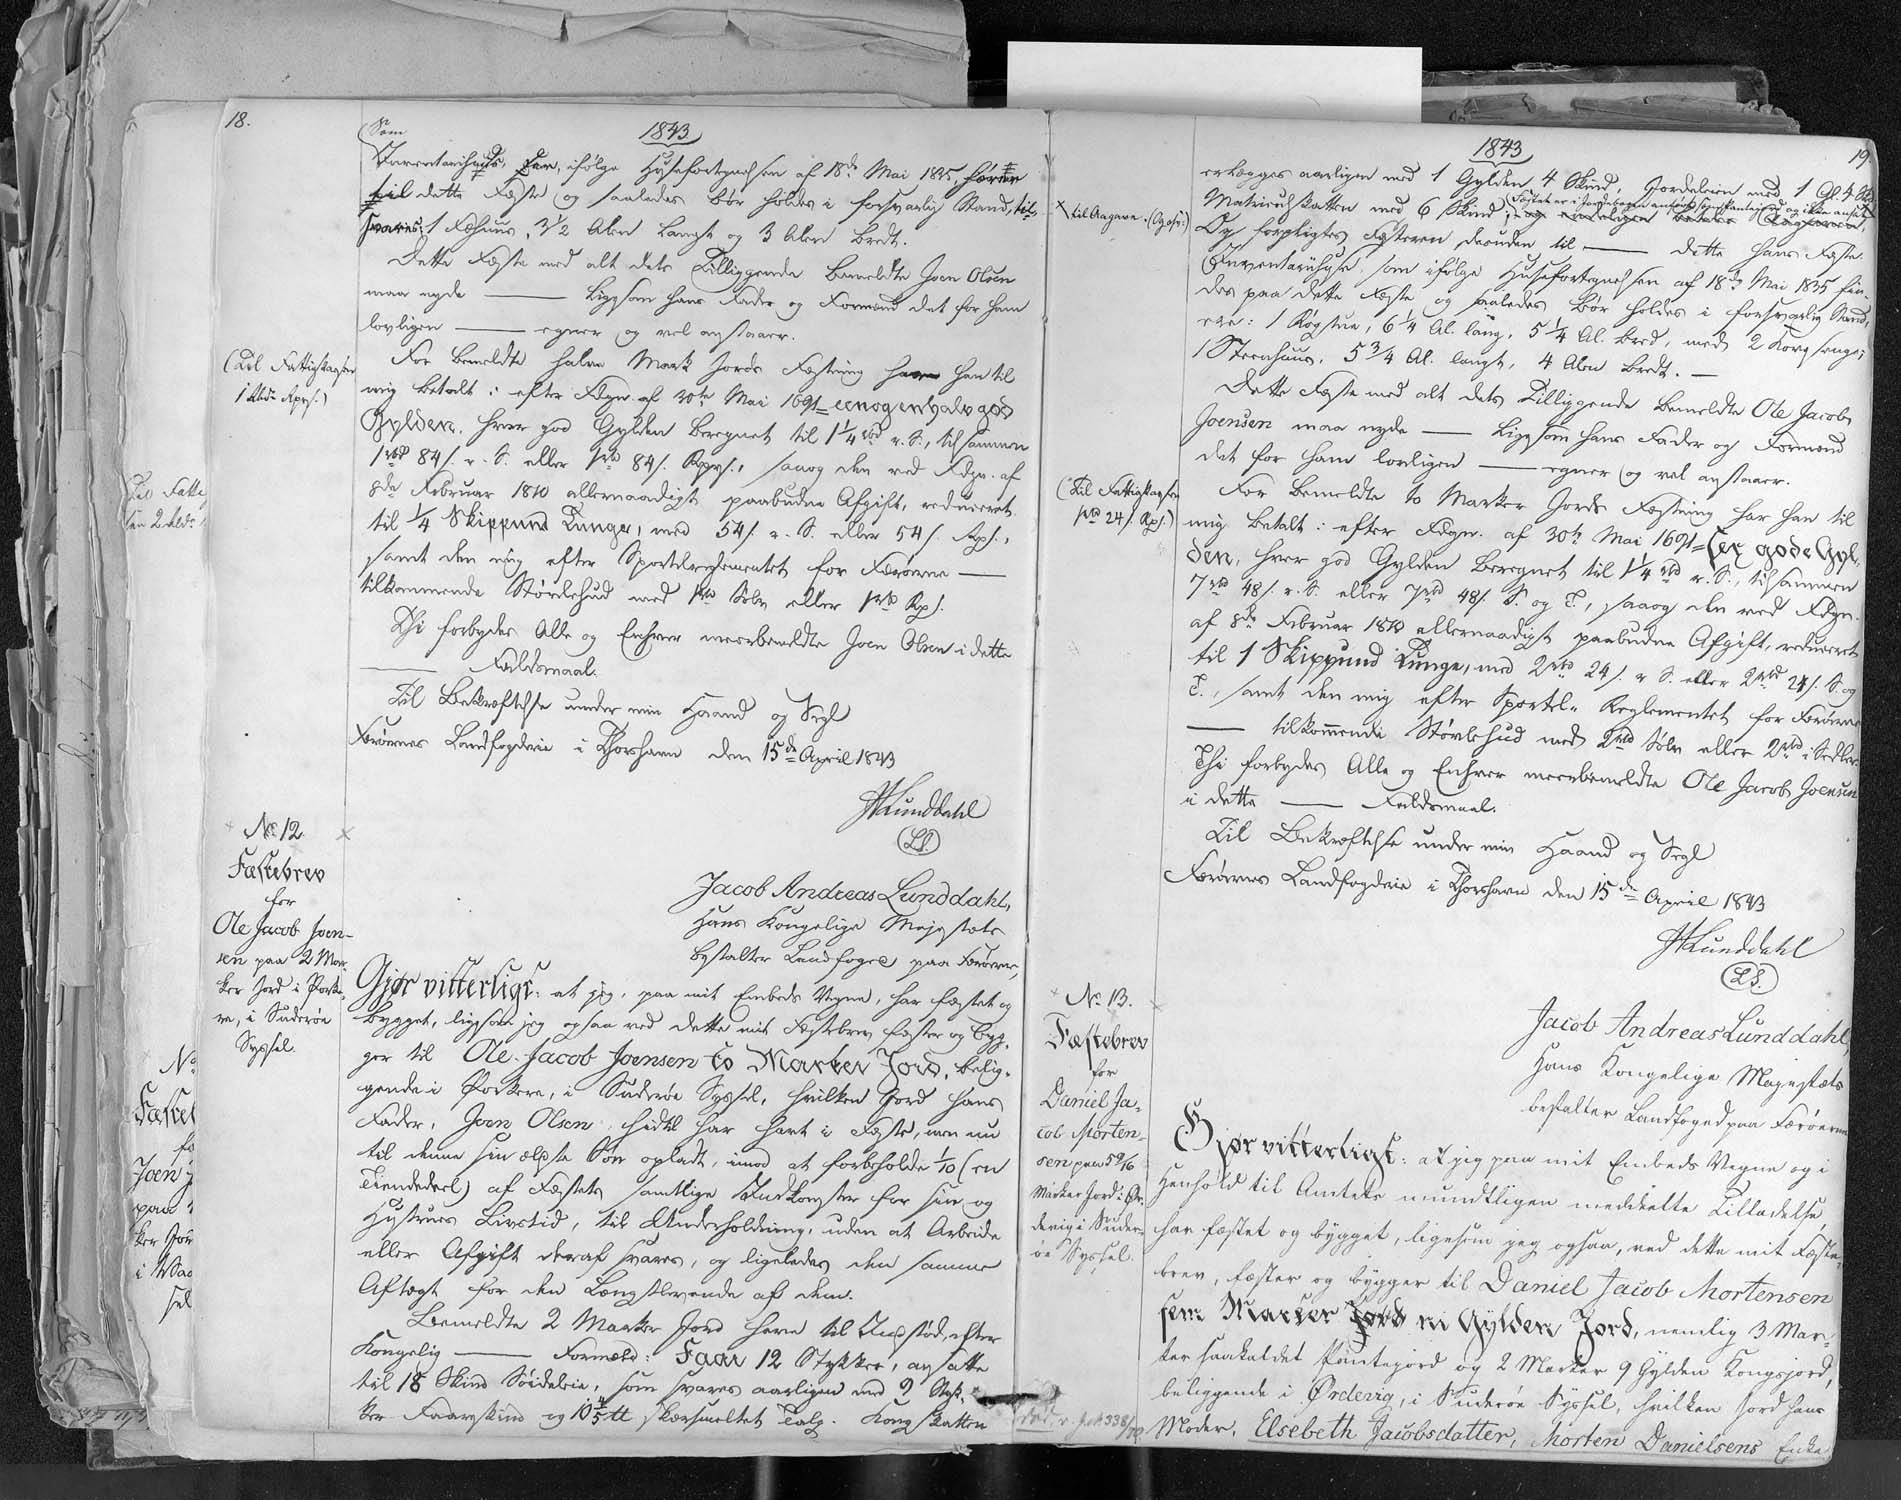 18.
1843
Som
Inventariihuus, ifølge Huusefortegnelsen af 18de Mai 1835, hører
til dette Fæste og saaledes bør holdes i forsvarlig Stand, til-
svares: 1 Fæhuus, 3 1/2 Alen langt og 3 Alen bredt.
Dette Fæste med alt dets Tilliggende bemeldte Joen Olsen
maa nyde — ligesom hans Fader og Formænd det for ham
lovligen — egner og vel anstaaer.
(Til Fattigkassen
1 Rbdr Rpg.)
For bemeldte halve Mark Jords Fæstning haver han til
mig betalt: efter Fdgn. af 30te Mai 1691 = een og en halv god
Gylden, hver god Gylden beregnet til 1 1/4 rbd r. S., tilsammen
1 rbd 84 s. r. S. eller 1 rbd 84 s. Rpg., saaog den ved Fdgn. af
8de Februar 1810 allernaadigst paabudne Afgift, reduceret
til 1/4 Skippund Tunge, med 54 s. r. S. eller 54 s. Rpg.,
samt den mig efter Sportelreglementet for Færøerne —
tilkommende Støvlehud med 1 rbd Sølv eller 1 rbd Rpg.
Thi forbydes Alle og Enhver meerbemeldte Joen Olsen i dette
— Faldsmaal.
Til Bekræftelse under min Haand og Segl
Færøernes Landfogderie i Thorshavn den 15de April 1843
JALunddahl
(LS.)
No. 12.
Fæstebrev
for
Ole Jacob Joen-
sen paa 2 Mar-
ker Jord i Porke-
re, i Suderøe
Syssel.
Jacob Andreas Lunddahl,
Hans Kongelige Majestæts
bestalter Landfoged paa Færøerne,
Gjør vitterligt: at jeg, paa mit Embeds Vegne, har fæstet og
bygget, ligesom jeg ogsaa ved dette mit Fæstebrev fæster og byg-
ger til Ole Jacob Joensen to Marker Jord, belig-
gende i Porkere, i Suderøe Syssel, hvilken Jord hans
Fader, Joen Olsen, hidtil har havt i Fæste, men nu
til denne sin ældste Søn opladt, imod at forbeholde 1/10 (en
Tiendedeel) af Fæstets samtlige Indkomster for sin og
Hustrues Livstid, til Underholdning, uden at Arbeide
eller Afgift deraf svares, og ligeledes den samme
Aftægt for den Længstlevende af dem.
Bemeldte 2 Marker Jord have til Indstød, efter
Kongelig — Formæld: Faar 12 Stykker, ansatte
til 18 Skind Søideleie, som svares aarligen med 9 Styk-
ker Faareskind og 10 4/5 tt skorsmeltet Talg. Kongskatten
1843
19.
erlægges aarligen med 1 Gylden 4 Skind, Jordeleien med 1 Gl. 4 Sk.
Matriculskatten med 6 Skind;
× til Aagave. (Ogsf.)
Og forpligtes Fæsteren desuden til — dette hans Fæste.
Inventariihuse, som ifølge Huusefortegnelsen af 18de Mai 1835 fin-
des paa dette Fæste og saaledes bør holdes i forsvarlig Stand,
ere: 1 Røgstue, 6 1/4 Al. lang, 5 1/4 Al. bred, med 2 Korgsenge;
1 Steenhuus, 5 3/4 Al. langt, 4 Alen bredt. —
Dette Fæste med alt dets Tilliggende bemeldte Ole Jacob
Joensen maa nyde — ligesom hans Fader og Formænd
det for ham lovligen — egner og vel anstaaer.
(Til Fattigkassen
1 rbd 24 s. Rpg.)
For bemeldte to Marker Jords Fæstning har han til
mig betalt: efter Fdgn. af 30te Mai 1691 = sex gode Gyl-
den, hver god Gylden beregnet til 1 1/4 rbd r. S., tilsammen
7 rbd 48 s. r. S. eller 7 rbd 48 s. S. og T., saaog den ved Fdgn.
af 8de Februar 1810 allernaadigst paabudne Afgift, reduceret
til 1 Skippund Tunge, med 2 rbd 24 s. r. S. eller 2 rbd 24 s. S. og
T., samt den mig efter Sportel-Reglementet for Færøerne
— tilkommende Støvlehud med 2 rbd Sølv eller 2 rbd i Sedler.
Thi forbydes Alle og Enhver meerbemeldte Ole Jacob Joensen
i dette — Faldsmaal.
Til Bekræftelse under min Haand og Segl
Færøernes Landfogderie i Thorshavn den 15de April 1843
JALunddahl
(LS.)
No. 13.
Fæstebrev
for
Daniel Ja-
cob Morten-
sen paa 5 9/16
Marker Jord i Ør-
devig i Suder-
øe Syssel.
Jacob Andreas Lunddahl,
Hans Kongelige Majestæts
bestalter Landfoged paa Færøerne
Gjør vitterligt: at jeg paa mit Embeds Vegne og i
Henhold til Amtets mundtligen meddeelte Tilladelse,
har fæstet og bygget, ligesom jeg ogsaa, ved dette mit Fæste-
brev, fæster og bygger til Daniel Jacob Mortensen
fem Marker Jord ni Gylden Jord, nemlig 3 Mar-
ker saakaldet Pantejord og 2 Marker 9 Gylden Kongsjord,
beliggende i Ørdevig, i Suderøe Syssel, hvilken Jord hans
Moder, Elsebeth Jacobsdatter, Morten Danielsens Enke